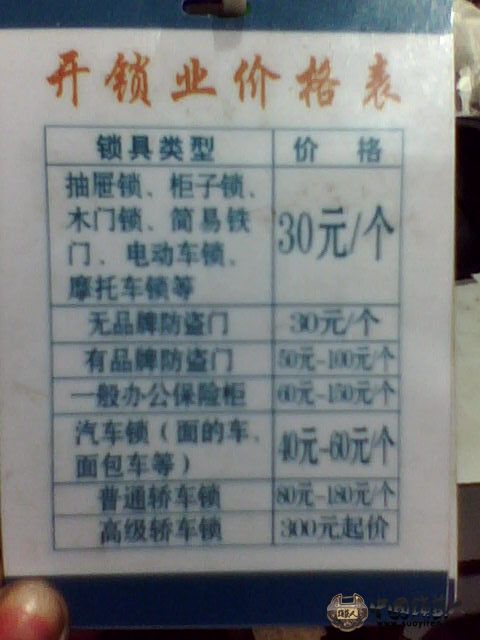 开锁业价格表
锁具类型 价 格
抽屉锁、柜子锁、
木门锁、简易铁
门、电动车锁、
摩托车锁等
30元/个
无品牌防盗门 30元/个
有品牌防盗门 50元-100元/个
一般办公保险柜 60元-150元/个
汽车锁（面的车、
面包车等）
40元-60元/个
普通轿车锁 80元-180元/个
高级轿车锁 300元起价
中国锁艺人
www.suoyiren